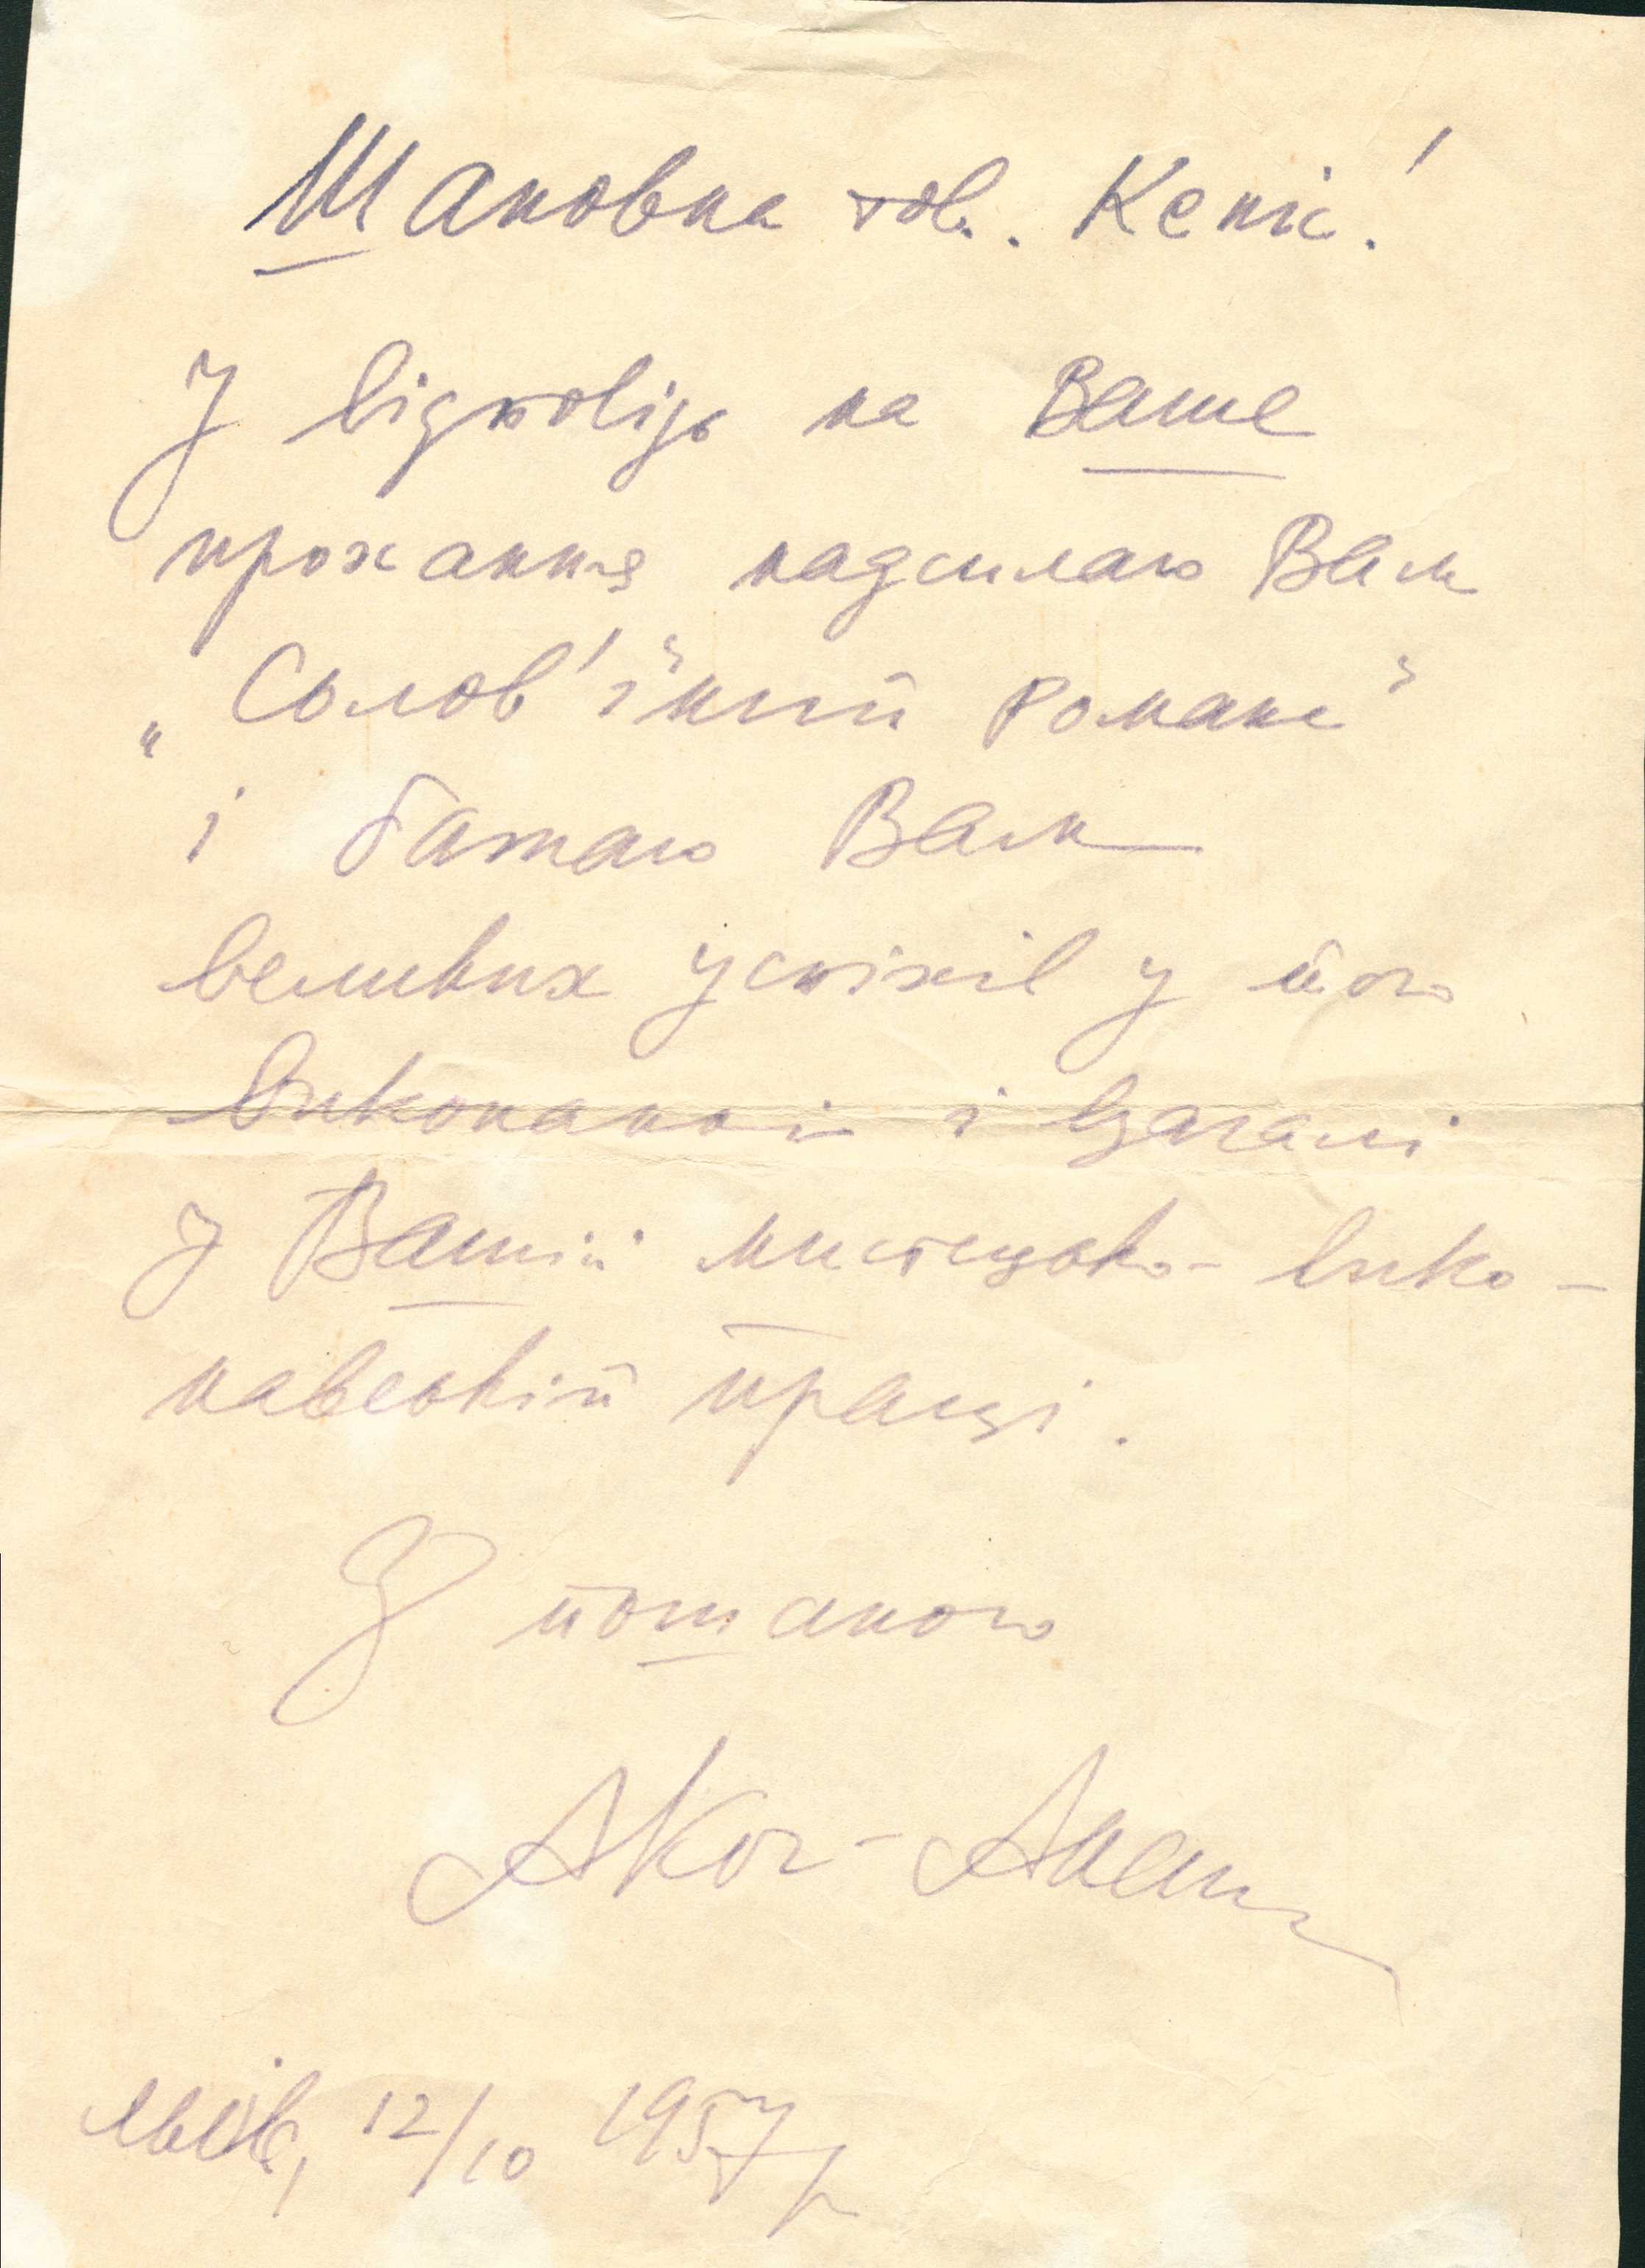 Шановна тов. Кепіс!
У відповідь на Ваше
прохання надсилаю Вам
„Солов'їний романс"
і бажаю Вам
великих успіхів у його
виконанні і взагалі
у Вашій мистецько-вико-
навській праці.
З пошаною
АКос-Ана
Львів, 12/10 1957р